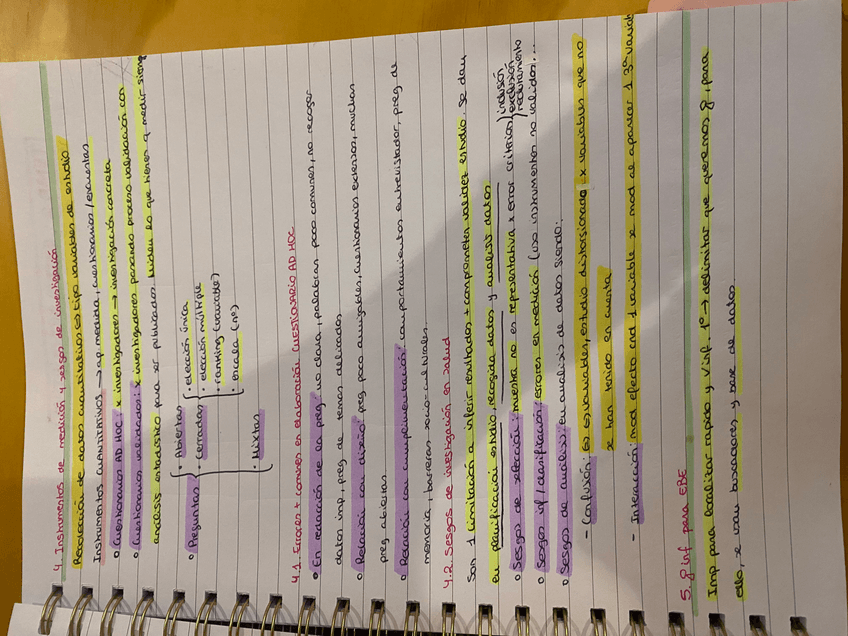 4. Instrumentos de medición y sesgos de investigación
Recolección de datos cuantitativos es tipo variables de estudio
Instrumentos CUANTITATIVOS → ap. medida, cuestionarios / encuestas
o Cuestionarios AD HOC: x investigadores → investigación concreta
o Cuestionarios validados: x investigadores pasando proceso validación con
análisis estadístico para ser publicados. Miden lo que tienen q medir siemp
o Preguntas
• Abiertas
• Cerradas
• elección única
• elección múltiple
• ranking (variable)
• escala (nº)
• Mixtas
4.1. Errores + comunes en elaboración CUESTIONARIO AD HOC
• En redacción de la preg: no clara, palabras poco comunes, no recoger
datos imp, preg de temas delicados
o Relación con diseño: preg poco amigables, cuestionarios extensos, muchas
preg abiertas
o Relación con cumplimentación: comportamientos entrevistador, preg de
memoria, barreras socio-culturales.
4.2. Sesgos de investigación en salud
Son 1 limitación a inferir resultados + comprometer validez estudio. Se dan
en planificación estudio, recogida datos y analisis datos.
o Sesgos de selección: muestra no es representativa x error criterios
inclusión
exclusión
reclutamiento
o Sesgos inf / clasificación: errores en medición (uso instrumentos no validos)...
o Sesgos de analisis: en analisis de datos siendo:
- Confusión: es variables, estudio distorsionado x variables que no
se han tenido en cuenta
- Interacción: mod efecto and 1 variable se mod al aparecer 1 3ª variab
5. g inf para EBE
Imp para localizar rapido y v inf. 1º → delimitar que queremos g, para
ello, se usan buscadores y base de datos